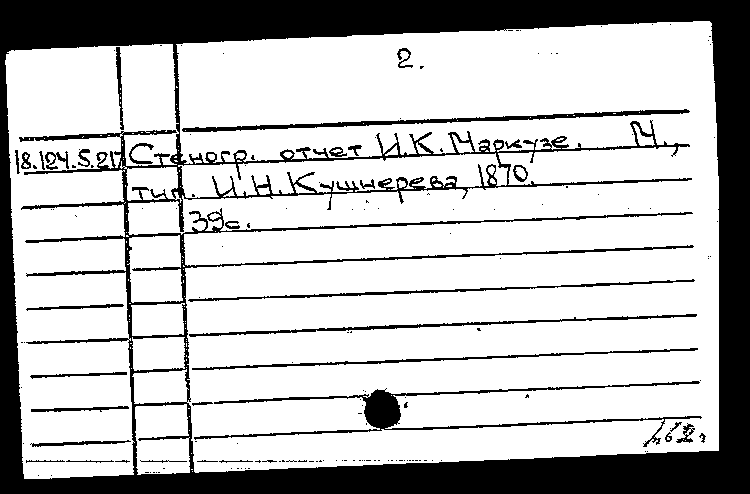 2.
18.124.5.217 Стеногр. отчет И.К. Маркузе. М.,
тип. И.Н. Кушнерева, 1870.
39с.